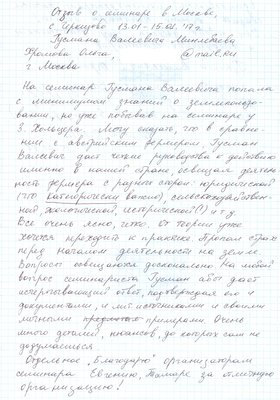 Отзыв о семинаре в Москве,
с. Ершово 13.01 - 15.01.17 г.
Руслана Валеевича Минлебаева
Ольга, @mail.ru
г. Москва
На семинар Руслана Валеевича попала
с минимумом знаний о земле
, но уже побывав на семинаре у
З. Хольцера. Могу сказать, что в сравне-
нии с австрийским фермером, Руслан
Валеевич дает четкие руководства к действию
именно в нашей стране, освещая деятель-
ность фермера с разных сторон: юридической
(что категорически важно), сельскохозяйствен-
ной, экологической, исторической (!) и т.д.
Все очень ясно, четко. От теории уже
хочется переходить к практике. Пропал страх
перед началом деятельности на земле.
Вопросы освещаются досконально. На любой
вопрос семинариста Руслан дает
исчерпывающий ответ, подтверждая его и
документами, и лит. источниками, и своими
личными примерами. Очень
много деталей, нюансов, до которых сам не
додумаешься.
Отдельное "благодарю" организаторам
семинара Евгению, Тамаре за отличную
организацию!